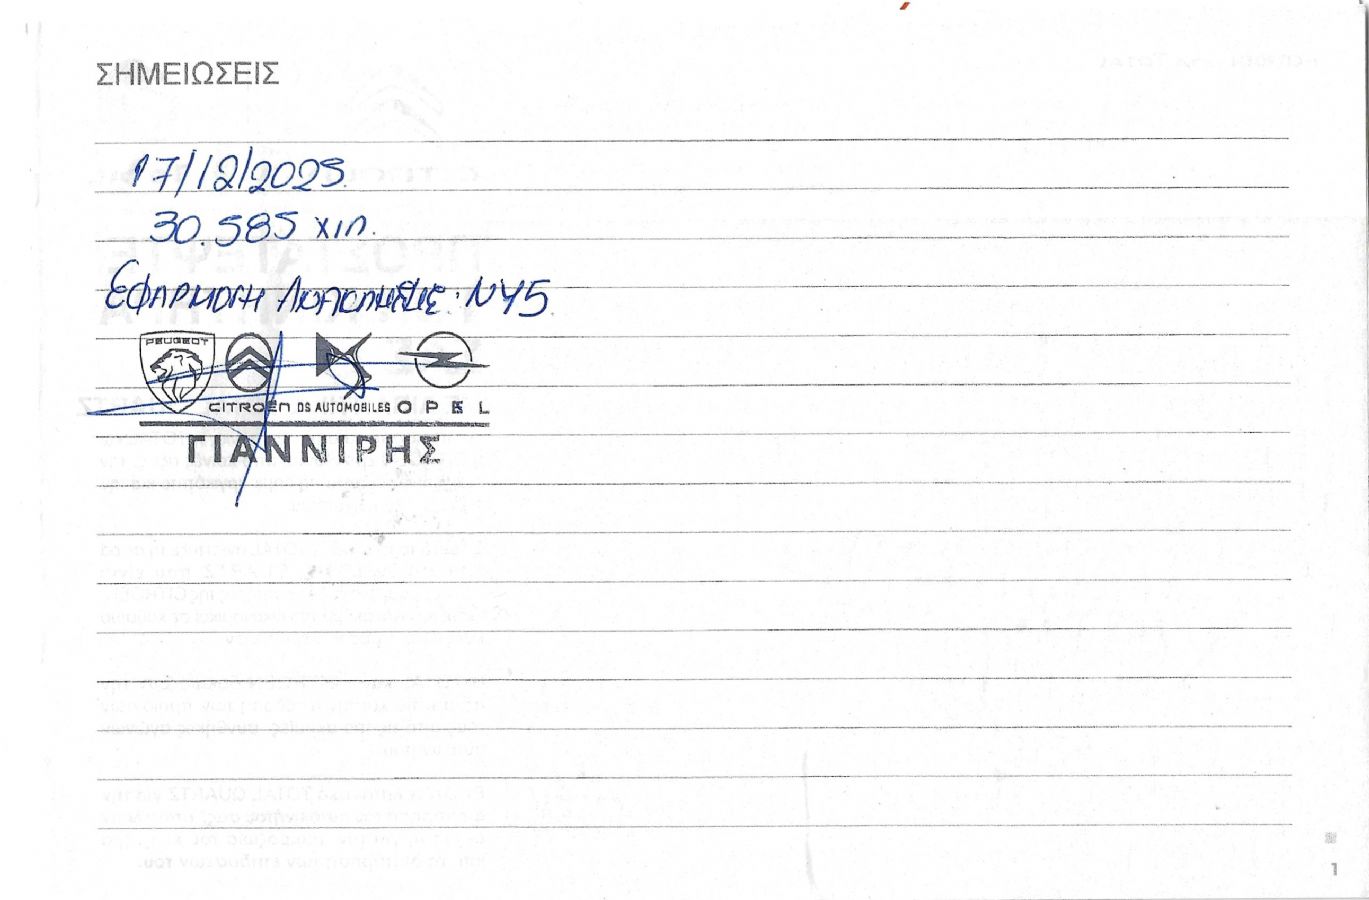 ΣΗΜΕΙΩΣΕΙΣ
17/12/2025.
30.585 χιλ.
ΕΦΑΡΜΟΓΗ ΝΥ5
PEUGEOT
CITROËN DS AUTOMOBILES OPEL
ΓΙΑΝΝΙΡΗΣ
1